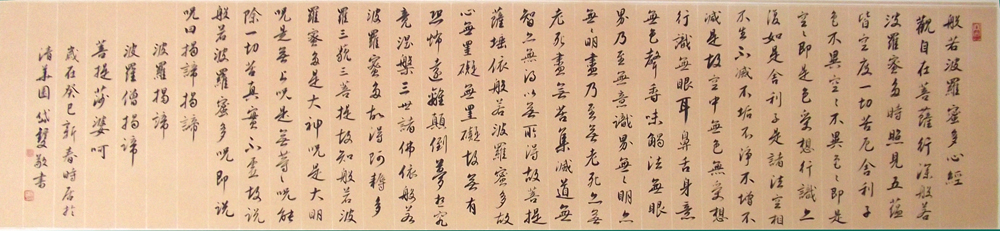 般若波羅蜜多心經
觀自在菩薩行深般若
波羅蜜多時照見五蘊
皆空度一切苦厄舍利子
色不異空空不異色色即是
空空即是色受想行識亦
復如是舍利子是諸法空相
不生不滅不垢不淨不增不
減是故空中無色無受想
行識無眼耳鼻舌身意
無色聲香味觸法無眼
界乃至無意識界無無明亦
無無明盡乃至無老死亦無
老死盡無苦集滅道無
智亦無得以無所得故菩提
薩埵依般若波羅蜜多故
心無罣礙無罣礙故無有
恐怖遠離顛倒夢想究
竟涅槃三世諸佛依般若
波羅蜜多故得阿耨多
羅三藐三菩提故知般若波
羅蜜多是大神呪是大明
呪是無上呪是無等等呪能
除一切苦真實不虛故說
般若波羅蜜多呪即說
呪曰揭諦揭諦
波羅揭諦
波羅僧揭諦
菩提莎婆呵
歲在癸巳新春時居於
清華園敬書